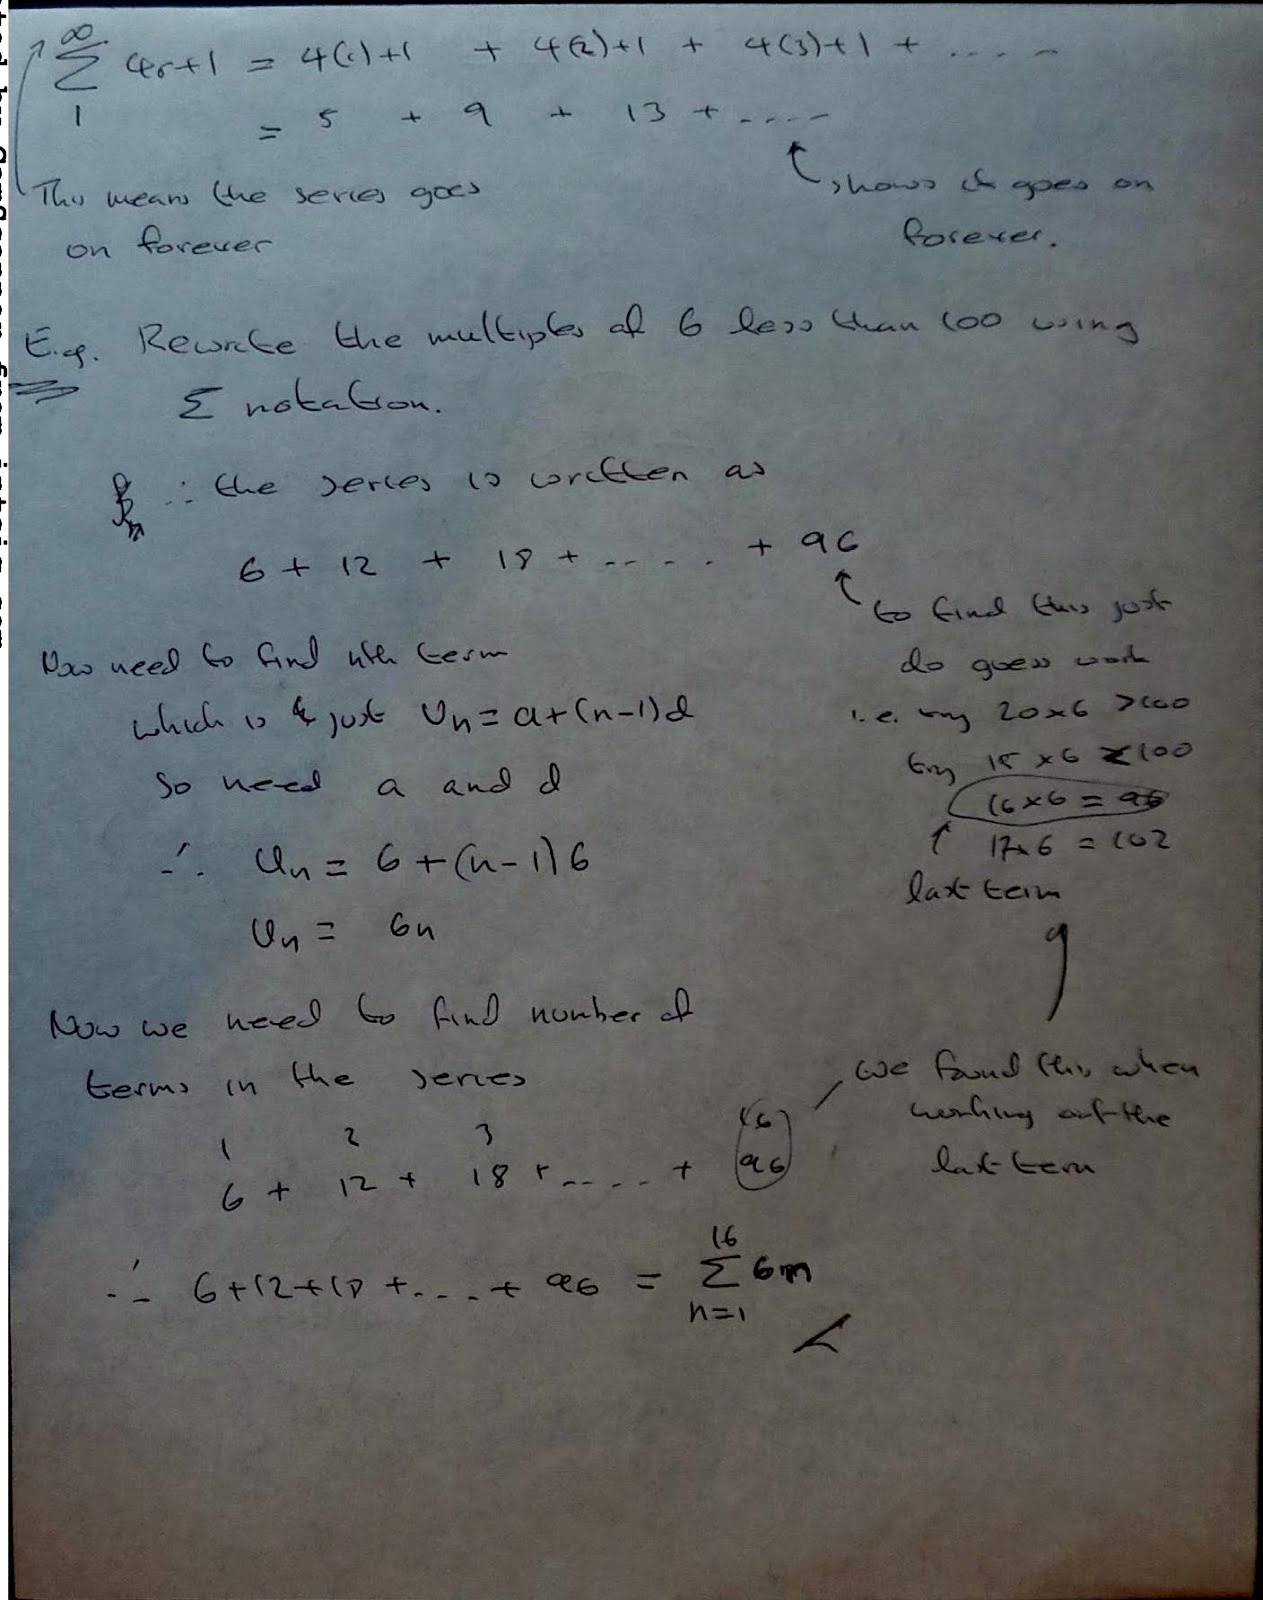 ∞
Σ 4r+1 = 4(1)+1 + 4(2)+1 + 4(3)+1 + .....
1
= 5 + 9 + 13 + ....
This means the series goes
on forever
shows it goes on
forever.
E.g. Rewrite the multiples of 6 less than 100 using
Σ notation.
∴ the series is written as
6 + 12 + 18 + ..... + 96
to find this just
do guess work
i.e. try 20x6 >100
try 15 x6 <100
16x6 = 96
17x6 = 102
last term
Now need to find nth term
which is just Un = a+(n-1)d
So need a and d
∴ Un = 6+(n-1)6
Un = 6n
Now we need to find number of
terms in the series
we found this when
working out the
last term
1 2 3 16
6 + 12 + 18 + ..... + 96
16
∴ 6+12+18 +....+ 96 = Σ 6n
n=1